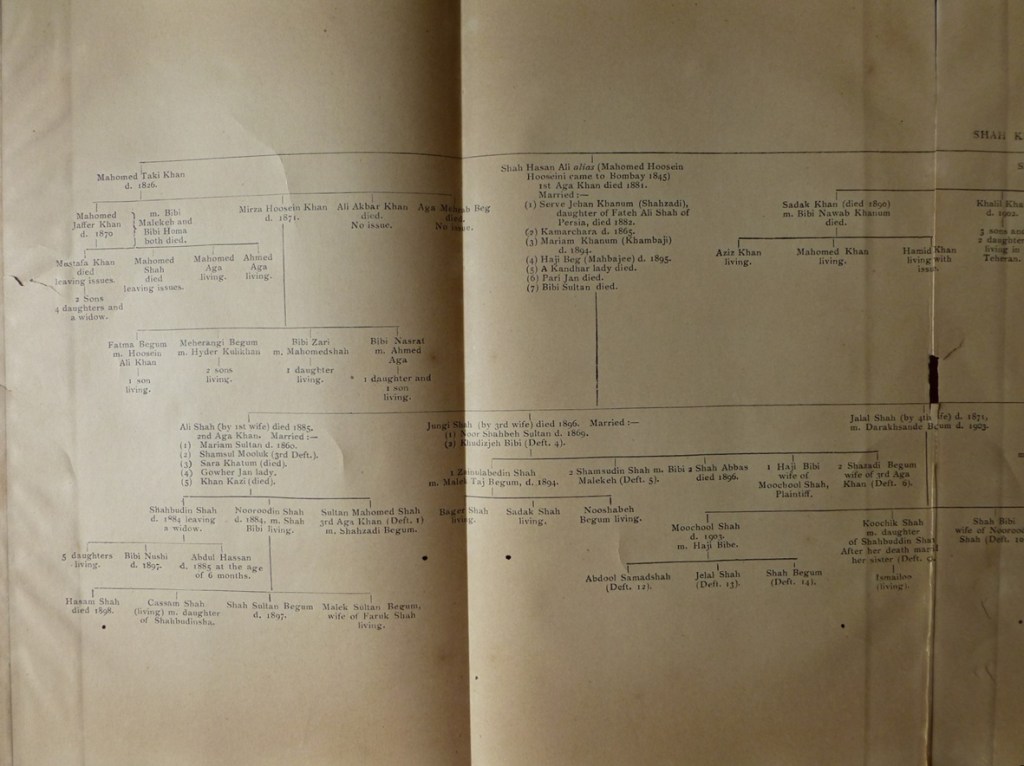 SHAH K
Mahomed Taki Khan
d. 1826.
Shah Hasan Ali alias (Mahomed Hoosein
Hooseini came to Bombay 1845)
1st Aga Khan died 1881.
Married:—
(1) Serve Jehan Khanum (Shahzadi),
daughter of Fateh Ali Shah of
Persia, died 1882.
(2) Kamarchara d. 1865.
(3) Mariam Khanum (Khambaji)
d. 1894.
(4) Haji Beg (Mahbajee) d. 1895.
(5) A Kandhar lady died.
(6) Pari Jan died.
(7) Bibi Sultan died.
Sadak Khan (died 1890)
m. Bibi Nawab Khanum
died.
Khalil Kha
d. 1902.
3 sons and
2 daughte
living in
Teheran.
Aziz Khan
living.
Mahomed Khan
living.
Hamid Khan
living with
issue.
Mahomed
Jaffer Khan
d. 1870
m. Bibi
Malekeh and
Bibi Homa
both died.
Mirza Hoosein Khan
d. 1871.
Ali Akbar Khan
died.
No issue.
Aga Beg
died.
No issue.
Mustafa Khan
died
leaving issues.
2 Sons
4 daughters and
a widow.
Mahomed
Shah
died
leaving issues.
Mahomed
Aga
living.
Ahmed
Aga
living.
Fatma Begum
m. Hoosein
Ali Khan
1 son
living.
Meherangi Begum
m. Hyder Kulikhan
2 sons
living.
Bibi Zari
m. Mahomedshah
1 daughter
living.
Bibi Nasrat
m. Ahmed
Aga
1 daughter and
1 son
living.
Ali Shah (by 1st wife) died 1885,
2nd Aga Khan. Married:—
(1) Mariam Sultan d. 1860.
(2) Shamsul Mooluk (3rd Deft.).
(3) Sara Khatum (died).
(4) Gowher Jan lady.
(5) Khan Kazi (died).
Jungi Shah (by 3rd wife) died 1896. Married:—
(1) Noor Shahbeh Sultan d. 1869.
(2) Khadizjeh Bibi (Deft. 4).
Jalal Shah (by 4th wife) d. 1871,
m. Darakhsande Begum d. 1903.
1 Zainulabedin Shah
m. Malek Taj Begum, d. 1894.
2 Shamsudin Shah m. Bibi
Malekeh (Deft. 5).
2 Shah Abbas
died 1896.
1 Haji Bibi
wife of
Moochool Shah,
Plaintiff.
2 Shazadi Begum
wife of 3rd Aga
Khan (Deft. 6).
Shahbudin Shah
d. 1884 leaving
a widow.
Nooroodin Shah
d. 1884, m. Shah
Bibi living.
Sultan Mahomed Shah
3rd Aga Khan (Deft. 1)
m. Shahzadi Begum.
Bager Shah
living.
Sadak Shah
living.
Nooshabeh
Begum living.
Moochool Shah
d. 1903.
m. Haji Bibe.
Koochik Shah
m. daughter
of Shahbuddin Shah
After her death
her sister (Deft.
Ismailoo
(living).
Shah Bibi
wife of Nooroo
Shah (Deft. 10
5 daughters
living.
Bibi Nushi
d. 1897.
Abdul Hassan
d. 1885 at the age
of 6 months.
Abdool Samadshah
(Deft. 12).
Jelal Shah
(Deft. 13).
Shah Begum
(Deft. 14).
Hasam Shah
died 1898.
Cassam Shah
(living) m. daughter
of Shahbudinsha.
Shah Sultan Begum
d. 1897.
Malek Sultan Begum,
wife of Faruk Shah
living.